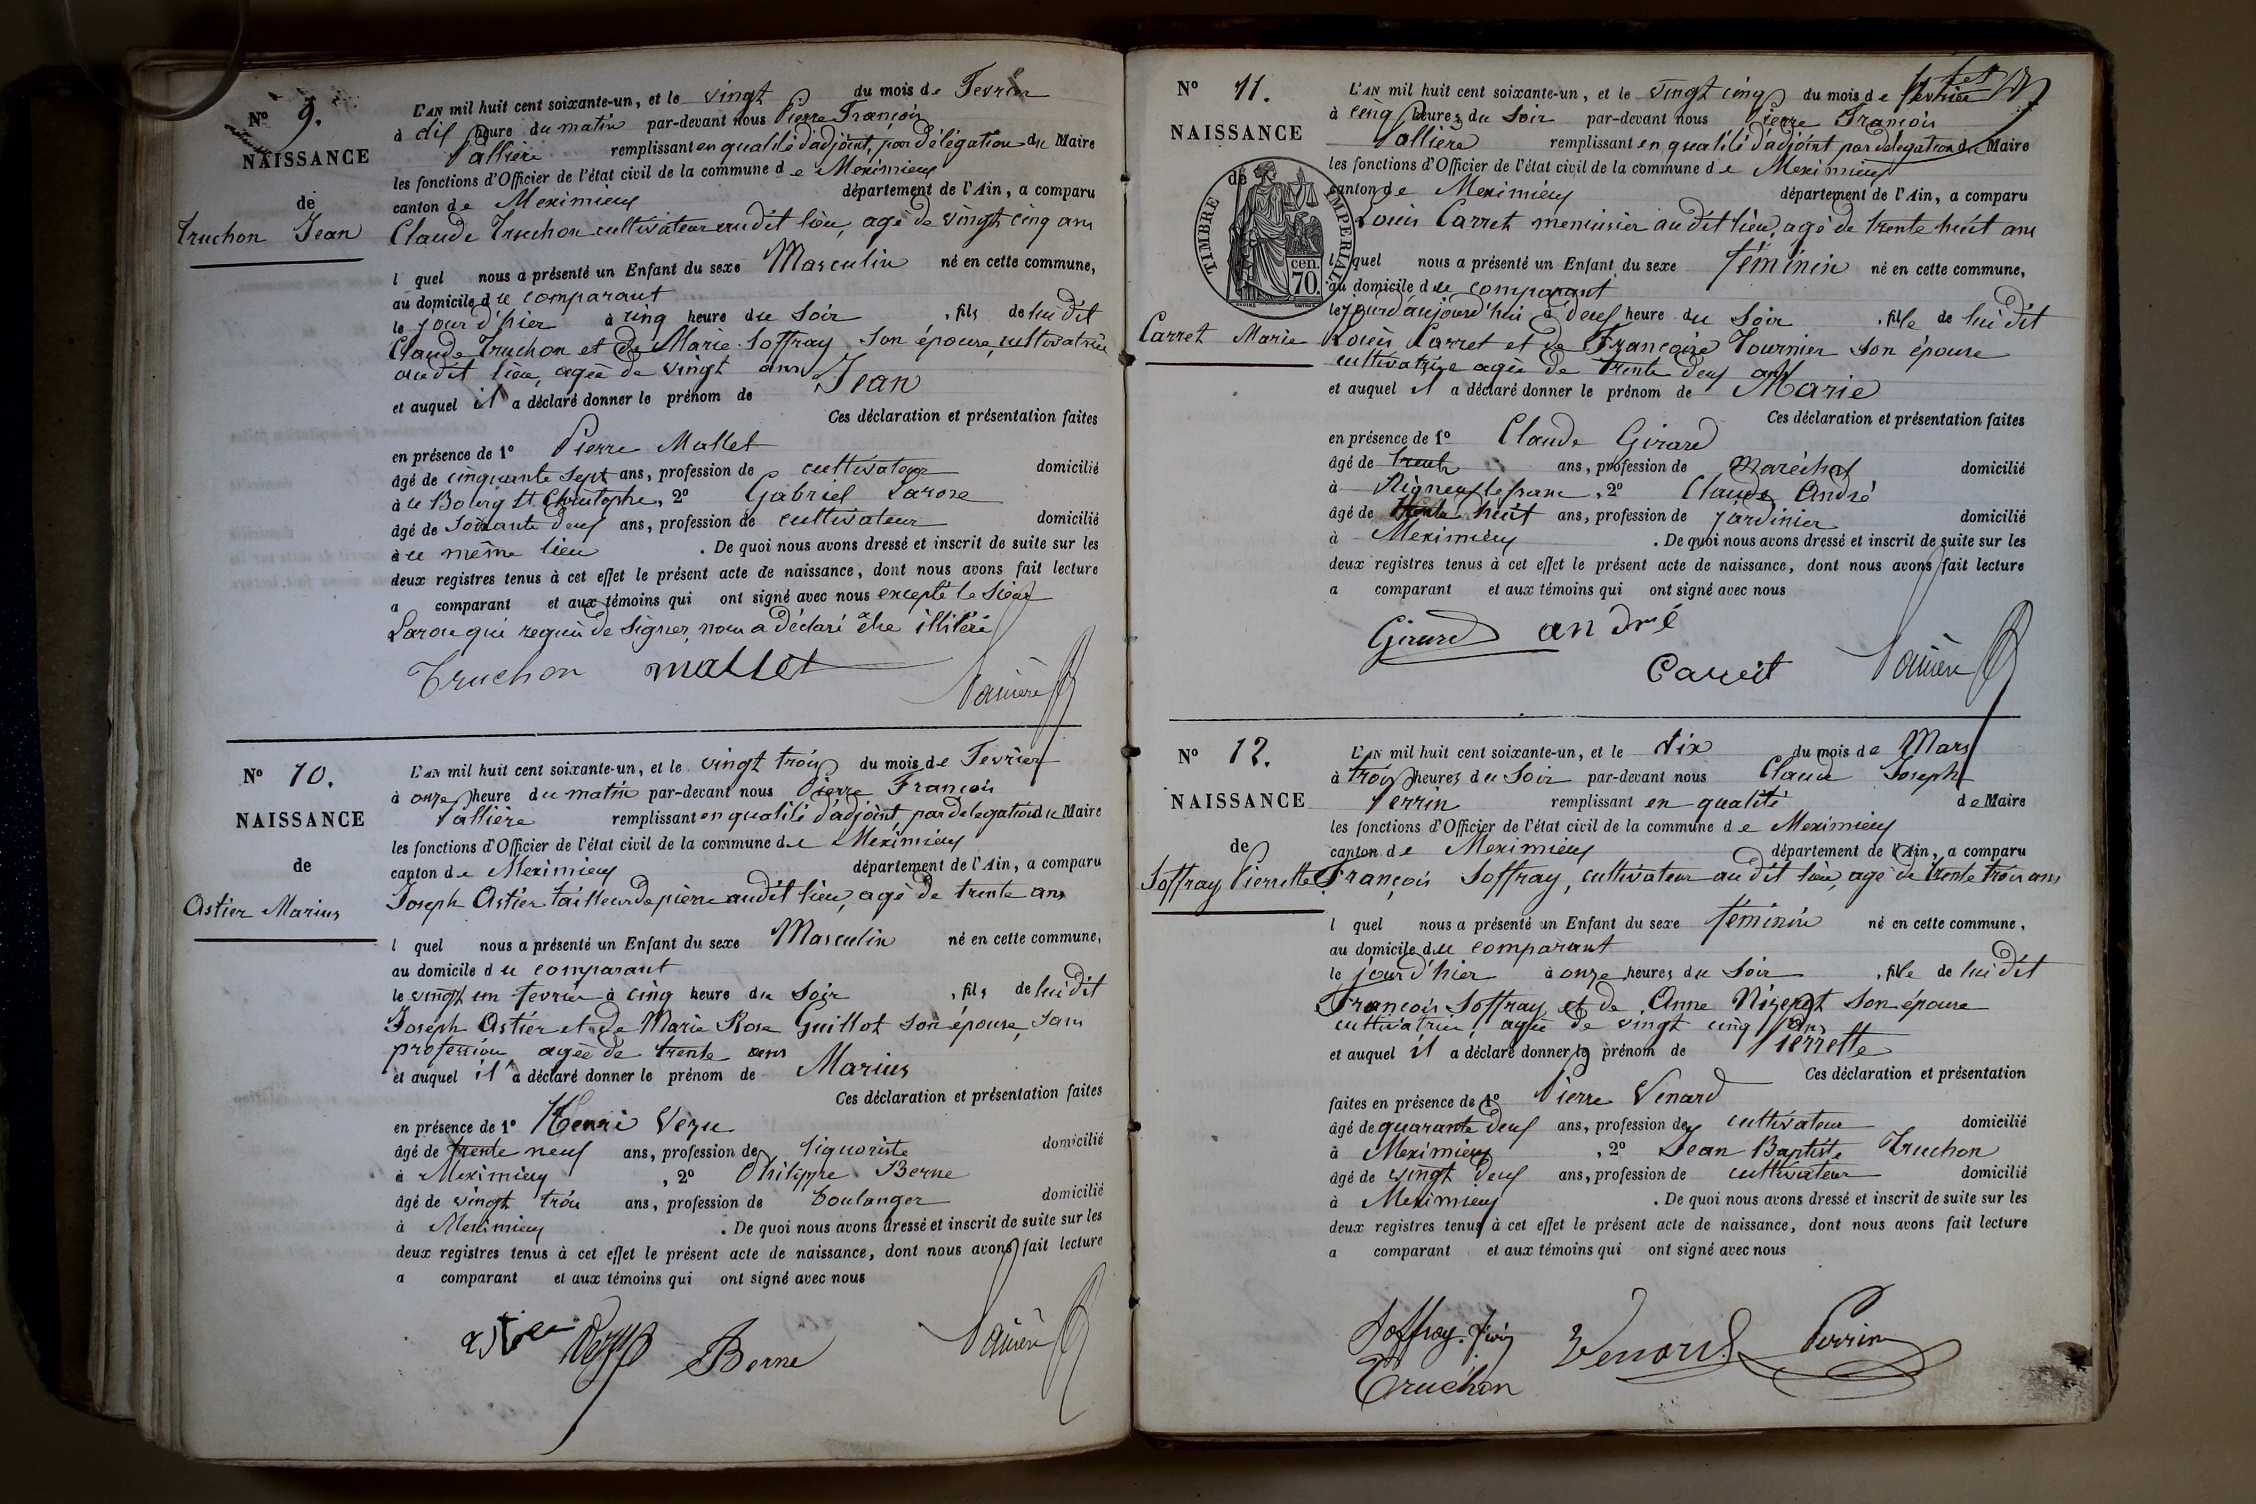 N° 9.
NAISSANCE
de
Truchon Jean
L'AN mil huit cent soixante-un, et le vingt du mois de Fevrier
à dix heure du matin par-devant nous Pierre François
Vallière remplissant en qualité d'adjoint, par délégation du Maire
les fonctions d'Officier de l'état civil de la commune de Meximieux
canton de Meximieux département de l'Ain, a comparu
Claude Truchon cultivateur audit lieu, agé de vingt cinq ans
l quel nous a présenté un Enfant du sexe Masculin né en cette commune,
au domicile du comparant
le jour d'hier à cinq heure du Soir , fils de lui dit
Claude Truchon et de Marie Soffray Son épouse, cultivatrice
audit lieu, agée de vingt ans
et auquel il a déclaré donner le prénom de Jean
Ces déclaration et présentation faites
en présence de 1° Pierre Mallet
âgé de cinquante Sept ans, profession de cultivateur domicilié
à le Bourg St Christophe, 2° Gabriel Larose
âgé de Soixante deux ans, profession de cultivateur domicilié
à u même lieu . De quoi nous avons dressé et inscrit de suite sur les
deux registres tenus à cet effet le présent acte de naissance, dont nous avons fait lecture
a comparant et aux témoins qui ont signé avec nous excepté le Sieur
Larose qui requis de Signer, nous a déclaré être illitéré
Truchon mallet Vallière
N° 10.
NAISSANCE
de
Astier Marius
L'AN mil huit cent soixante-un, et le vingt trois du mois de Fevrier
à onze heure du matin par-devant nous Pierre François
Vallière remplissant en qualité d'adjoint, par delegation du Maire
les fonctions d'Officier de l'état civil de la commune de Meximieux
canton de Meximieux département de l'Ain, a comparu
Joseph Astier tailleur de pierre audit lieu, agé de trente ans
l quel nous a présenté un Enfant du sexe Masculin né en cette commune,
au domicile du comparant
le vingt un fevrier à cinq heure du Soir , fils de lui dit
Joseph Astier et de Marie Rose Guillot Son épouse, Sans
profession agée de trente ans
et auquel il a déclaré donner le prénom de Marius
Ces déclaration et présentation faites
en présence de 1° Henri Vezu
âgé de trente neuf ans, profession de liquoriste domicilié
à Meximieux , 2° Philippe Berne
âgé de vingt trois ans, profession de boulanger domicilié
à Meximieux . De quoi nous avons dressé et inscrit de suite sur les
deux registres tenus à cet effet le présent acte de naissance, dont nous avons fait lecture
a comparant et aux témoins qui ont signé avec nous
astier Vezu Berne Vallière
N° 11.
NAISSANCE
de
TIMBRE IMPERIAL
cen.
70.
Carret Marie
L'AN mil huit cent soixante-un, et le vingt cinq du mois de fevrier
à cinq heures du Soir par-devant nous Pierre François
Vallière remplissant en qualité d'adjoint par délégation du Maire
les fonctions d'Officier de l'état civil de la commune de Meximieux
canton de Meximieux département de l'Ain, a comparu
Louis Carret menuisier au dit lieu, agé de trente huit ans
l quel nous a présenté un Enfant du sexe féminin né en cette commune,
au domicile du comparant
le jourd'aujourd'hui à deux heure du Soir , fille de lui dit
Louis Carret et de Françoise Tournier Son épouse
cultivatrice agée de trente deux ans
et auquel il a déclaré donner le prénom de Marie
Ces déclaration et présentation faites
en présence de 1° Claude Girard
âgé de trente ans, profession de Maréchal domicilié
à Rigneux le franc, 2° Claude André
âgé de trente huit ans, profession de jardinier domicilié
à Meximieux . De quoi nous avons dressé et inscrit de suite sur les
deux registres tenus à cet effet le présent acte de naissance, dont nous avons fait lecture
a comparant et aux témoins qui ont signé avec nous
Girard andré
Carret Vallière
N° 12.
NAISSANCE
de
Soffray Pierrette
L'AN mil huit cent soixante-un, et le dix du mois de Mars
à trois heures du Soir par-devant nous Claude Joseph
Perrin remplissant en qualité de Maire
les fonctions d'Officier de l'état civil de la commune de Meximieux
canton de Meximieux département de l'Ain, a comparu
François Soffray, cultivateur au dit lieu, agé de trente trois ans
l quel nous a présenté un Enfant du sexe féminin né en cette commune,
au domicile du comparant
le jour d'hier à onze heures du Soir , fille de lui dit
François Soffray et de Anne Nizerot Son épouse
cultivatrice, agée de vingt cinq ans
et auquel il a déclaré donner le prénom de Pierrette
Ces déclaration et présentation
faites en présence de 1° Pierre Venard
âgé de quarante deux ans, profession de cultivateur domicilié
à Meximieux , 2° Jean Baptiste Truchon
âgé de vingt deux ans, profession de cultivateur domicilié
à Meximieux . De quoi nous avons dressé et inscrit de suite sur les
deux registres tenus à cet effet le présent acte de naissance, dont nous avons fait lecture
a comparant et aux témoins qui ont signé avec nous
Soffray Venard Perrin
Truchon